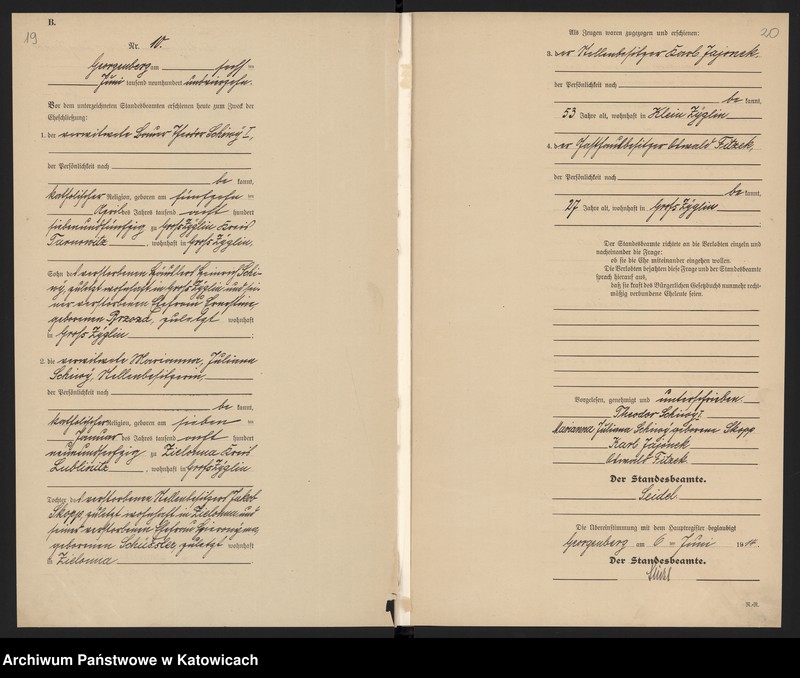 B.
19
Nr. 10.
Georgenberg am sechs ten
Juni tausend neunhundert undvierzehn.
Vor dem unterzeichneten Standesbeamten erschienen heute zum Zweck der
Eheschließung:
1. der verwitwete Bauer Theodor Schiwy I,
der Persönlichkeit nach
be kannt,
katholischer Religion, geboren am fünfzehn ten
April des Jahres tausend acht hundert
siebenundfünfzig zu Groß Zyglin Kreis
Tarnowitz, wohnhaft in Groß Zyglin,
Sohn des verstorbenen Häuslers Schi-
wy, zuletzt wohnhaft in Groß Zyglin und sei-
ner verstorbenen Ehefrau Ernestine
geborenen Brzozd, zuletzt wohnhaft
in Groß Zyglin;
2. die verwitwete Marianna, Juliana
Schiwy, Stellenbesitzerin,
der Persönlichkeit nach
be kannt,
katholischer Religion, geboren am sieben ten
Januar des Jahres tausend acht hundert
neunundsechzig zu Zielonna Kreis
Lublinitz, wohnhaft in Groß Zyglin
Tochter des verstorbenen Stellenbesitzers Jakob
Skopp, zuletzt wohnhaft in Zielonna und
seiner verstorbenen Ehefrau
geborenen Schüssler, zuletzt wohnhaft
in Zielonna
20
Als Zeugen waren zugezogen und erschienen:
3. der Stellenbesitzer Karl Jajonek
der Persönlichkeit nach
be kannt,
53 Jahre alt, wohnhaft in Klein Zyglin
4. der Gasthausbesitzer Oswald Fitzek,
der Persönlichkeit nach
be kannt,
27 Jahre alt, wohnhaft in Groß Zyglin
Der Standesbeamte richtete an die Verlobten einzeln und
nacheinander die Frage:
ob sie die Ehe miteinander eingehen wollen.
Die Verlobten bejahten diese Frage und der Standesbeamte
sprach hierauf aus,
daß sie kraft des Bürgerlichen Gesetzbuchs nunmehr recht-
mäßig verbundene Eheleute seien.
Vorgelesen, genehmigt und unterschrieben
Theodor Schiwy I
Marianna Juliana Schiwy geborene Skopp
Karl Jajonek
Oswald Fitzek
Der Standesbeamte.
Seidel
Die Übereinstimmung mit dem Hauptregister beglaubigt
Georgenberg am 6 ten Juni 1914.
Der Standesbeamte.
R.-R.
Archiwum Państwowe w Katowicach